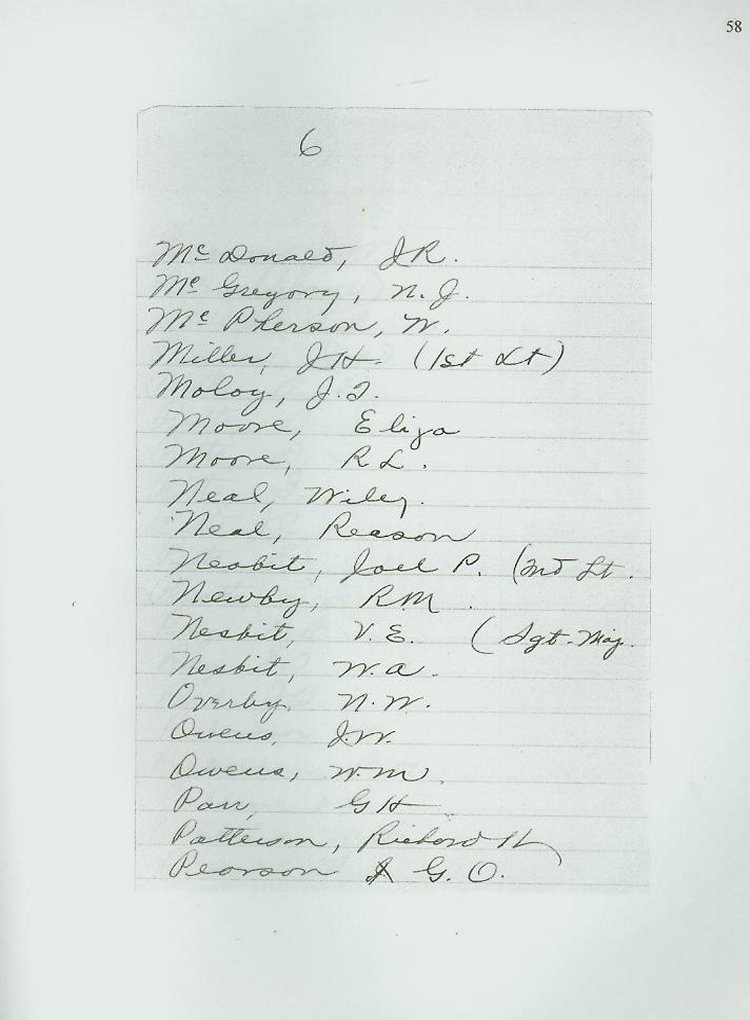 58
6
Mc Donald, J.R.
Mc Gregory, N.J.
Mc Pherson, W.
Miller, J.H. (1st Lt)
Moloy, J.T.
Moore, Eliza
Moore, R L.
Neal, Wiley.
Neal, Reason
Nesbit, Joel P. (2nd Lt.
Newby, R.M.
Nesbit, V.E. (Sgt. Maj.
Nesbit, W.A.
Overby, N.W.
Owens, J.W.
Owens, W.M.
Parr, G H
Patterson, Richard H
Pearson G. O.